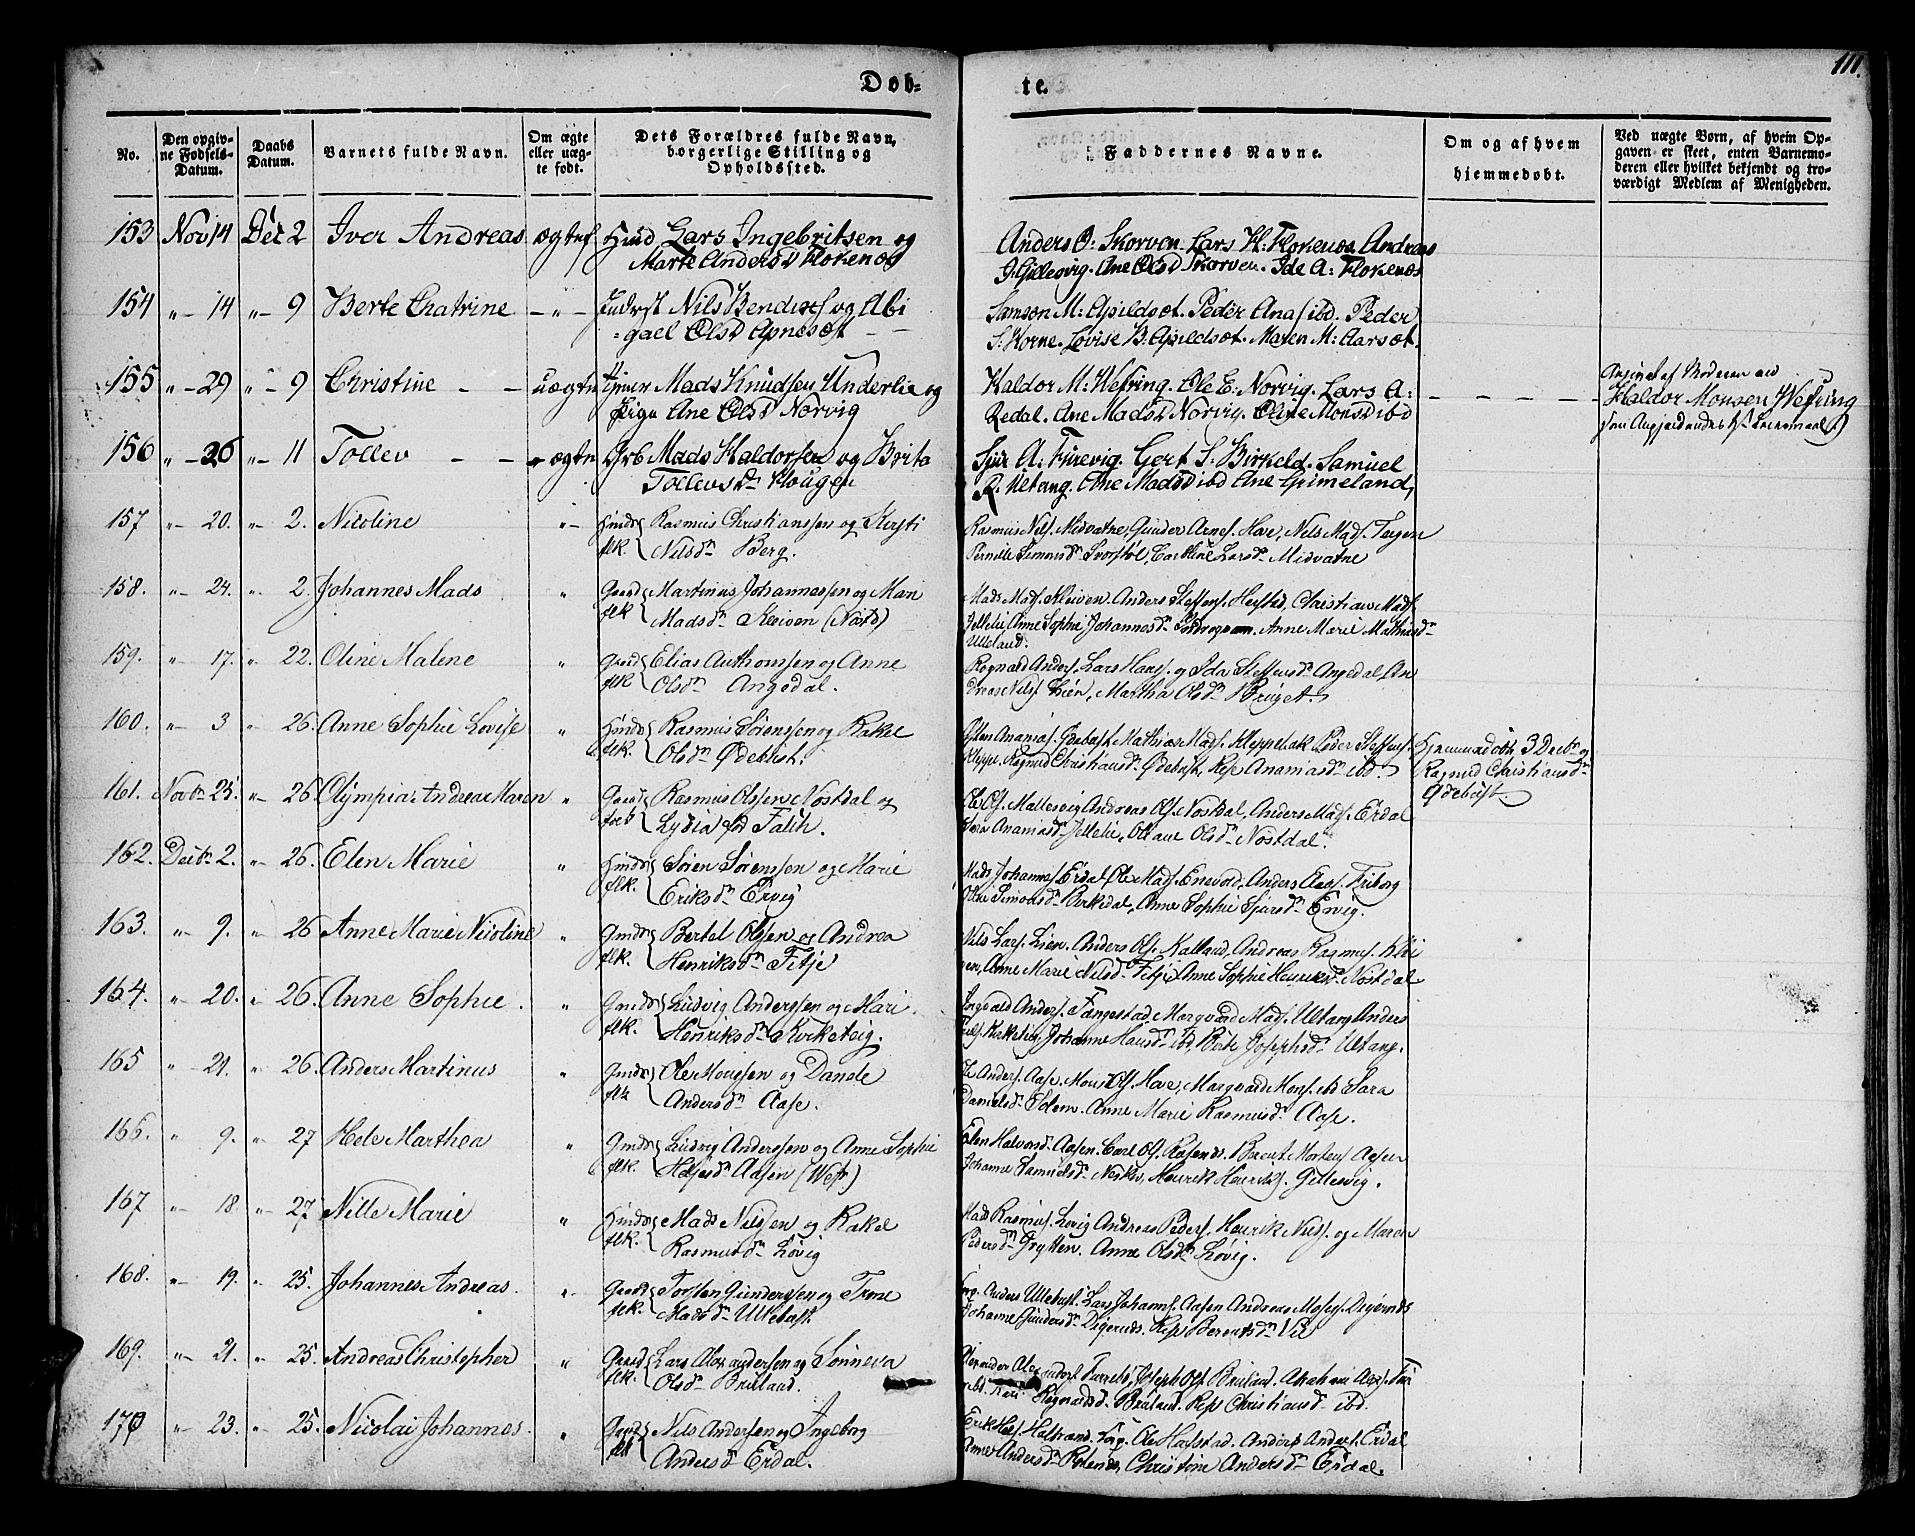 111.
Døb-
te.
No.
Den opgiv-
ne Fødsels-
Datum.
Daabs
Datum.
Barnets fulde Navn.
Om ægte
eller uæg-
te født.
Dets Forældres fulde Navn,
borgerlige Stilling og
Opholdssted.
Faddernes Navne.
Om og af hvem
hjemmedøbt.
Ved uægte Børn, af hvem Op-
gaven er skeet, enten Barnemo-
deren eller hvilket bekjendt og tro-
værdigt Medlem af Menigheden.
153 Nov 14 Dec 2 Iver Andreas ægtef Hmd Lars Ingebritsen og
Marte Andersd Flokenæs
Anders O: Skorven. Lars H: Flokenæs Andreas
Ane Olsd Skorven. Ida A: Flokenæs
154 " - 14 " - 9 Berte Chatrine - " - Nils Bendixs og Abi
=gael Olsd Apnesæt
Samson M: Apildsæt. Peder Anas ibd. Peder
S: Horne. Lovise B. Apildsæt. Maren M: Aarsæt.
155 " - 29 " - 9 Christine - - uægte Mads Knudsen Underlie og
Pige Ane Olsd Norvig
Haldor M: Wefring. Ole E. Norvig. Lars A:
Redal. Ane Madsd Norvig. Oline Monsd ibd
Angivet af Moderen
Haldor Monsen Wefring
156 " - 26 " - 11 Tollev - - ægte Grb Mads Haldorsen og Brita
Tollevsdr Hougen
A: Furevig. Gert S. Birkeld. Samuel
R. Ultang. Ane Madsd ibd Ane Grimeland,
157 " - 20. " - 2. Nicoline " - Hmds Rasmus Christianssen og Kirsti
flk. Nilsdr Berg.
Rasmus Nils. Midvatne, Gunder Arnes. Hove, Nils Mads.
Pernille Simonsdr Svorstøl, Larsdr Midvatne
158. " - 24. " 2. Johannes Mads " Gaard Martinus Johannessen og Mari
flk Madsdr Kleiven (Nøstd)
Mads Mads. Kleiven. Anders Steffens. Hestad, Christian Mads.
Jellelie Anne Sophie Johannesdr Anne Marie Mathiasdr
Ulleland.
159. " 17. " 22. Oline Malene " Gaard Elias Anthonssen og Anne
flk Olsdr Angedal.
Rognald Anders. Lars Hans. og Ida Steffensdr Angedal, An
dreas Nils. Lien, Martha Olsdr Bruget.
160. " - 3 " - 26. Anne Sophie Lovise " Hmds Rasmus Sørenssen og Rakel
flk. Olsdr Ødebøst.
Ananias. Ødebøst Mathias Mads. Kleppetak Peder Steffens.
Kleppe. Ragnild Christiansdr Ødebøst, Ananiasdr ibd.
Hjemmedøbt 3 Decbr
Ragnild Christiansdr
Ødebøst.
161. Novbr 25. " - 26 Olympia Andrea Maren " Gaard Rasmus Olssen Nøstdal og
Lydia fød Falch.
Ole Ols. Mallesvig Andreas Ols. Nøstdal, Anders Mads. Erdal
Ananiasdr Jellelie, Olave Olsdr Nøstdal.
162. Decbr 2. " - 26. Elen Marie " Hmds Søren Sørenssen og Marie
flk. Eriksdr Ervig
Mads Johannes. Erdal Ole Mads. Enevold, Anders Aas. Friborg
Oline Simonsdr Birkedal, Anne Sophie Sjursdr Ervig.
163. " - 9. " - 26 Anne Marie Nicoline " Gmds Bertel Olssen og Andrea
flk. Henriksdr Fitje
Nils Lars. Lien. Anders Ols. Kalland, Andreas Rasmus. Klei
ven, Anne Marie Nilsd. Fitje Anne Sophie Henriksd. Nøstdal
164. " - 20. " 26. Anne Sophie. " Gmds Ludvig Anderssen og Mari
flk. Henriksdr Kirketeig.
Ingvald Anders. Tangestad Margvard Mads. Ultang Anders
Nils. Kirketeig, Johanne Hansdr ibd, Birte Josephsdr Ultang.
165 " - 21. " 26. Anders Martinus " Gmds Ole Monssen og Danele
flk Andersdr Aase.
Ole Anders. Aase. Mons Ols. Hove, Margvard Mons. ibd Sara
Danielsdr Solem. Anne Marie Rasmusdr Aase.
166. " 9. " - 27 Hele Marthea " Gmds Ludvig Anderssen og Anne Sophie
flk. Aasen (Wefr.)
Elen Halvorsd. Aasen. Carl Ols. Berent Mortens. Aasen
Johanne Samuelsdr Neskø, Henrik Henriks. Gillesvig.
167 " - 18. " - 27 Nille Marie " Hmds Mads Nilssen og Rakel
flk. Rasmusdr Løvig
Mads Rasmus. Løvig Andreas Peders. Henrik Nils. og Maren
Pedersdr Grytten. Anne Olsdr Løvig.
168. " - 19. " 25. Johannes Andreas. " - Gaard Torsten Gunderssen og Trone
flk. Madsdr Ullebøst
Anders Ullebøst. Lars Johanns. Aasen Andreas Moses. Digernæs
Johanne Gundersdr Digernæs. Berentsdr Vie
169. " - 21. " - 25. Andreas Christopher " Gaard Lars Alexandersen og Sønneva
flk. Olsdr Bruland.
Alexander Joseph Ols. Bruland. Abraham
Ragnvaldsd. Bruland. Christiansd. ibd.
170 " - 23. " 25. Nicolai Johannes. " Gaard Nils Anderssen og Ingeborg
flk Andersdr Erdal.
Erik Hans. Halstrand. Ole Hafstad. Anders Anders. Erdal
Anne Andersdr Christine Andersdr Erdal.